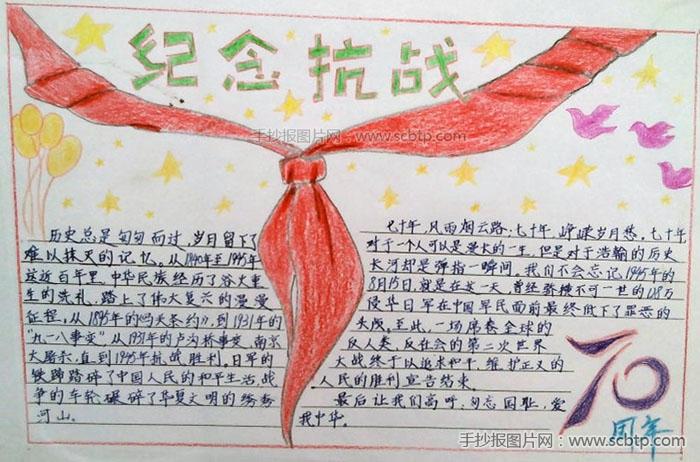 纪念抗战
手抄报图片网：www.scbtp.com
历史总是匆匆而过，岁月留下了
难以抹灭的记忆。从1840年至1945年
这近百年里，中华民族经历了浴火重
生的洗礼，踏上了伟大复兴的漫漫
征程，从1895年的《马关条约》，到1931年的
“九一八事变”从1937年的卢沟桥事变，南京
大屠杀，直到1945年抗战胜利。日军的
铁蹄踏碎了中国人民的和平生活，战
争的车轮碾碎了华夏文明的锦秀
河山。
七十年，风雨烟云路，七十年，峥嵘岁月愁。七十年，
对于一个人可以是漫长的一生，但是对于浩翰的历史
长河却是弹指一瞬间。我们不会忘记1945年的
8月15日，就是在这一天，曾经骄横不可一世的128万
侵华日军在中国军民面前最终低下了罪恶的
头颅。至此，一场席卷全球的
反人类，反社会的第二次世界
大战终于以追求和平，维护正义的
人民的胜利宣告结束。
最后让我们高呼，勿忘国耻，爱
我中华。
70
周年
手抄报图片网：www.scbtp.com